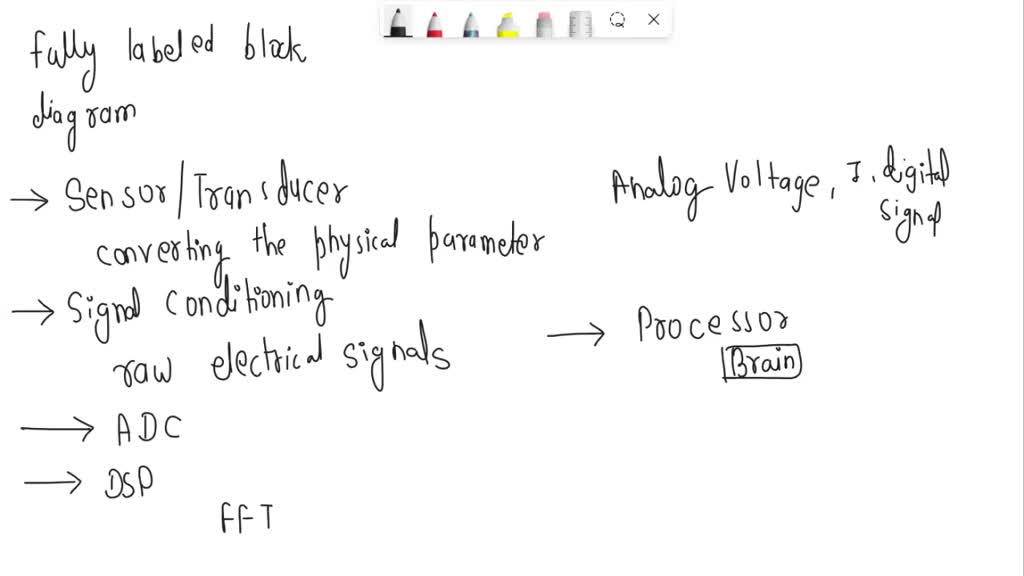 fully labeled block
diagram
→ Sensor/Transducer
converting the physical parameter
→ Signal Conditioning
raw electrical signals
→ ADC
→ DSP
FFT
Analog Voltage, I, digital
signal
→ Processor
Brain